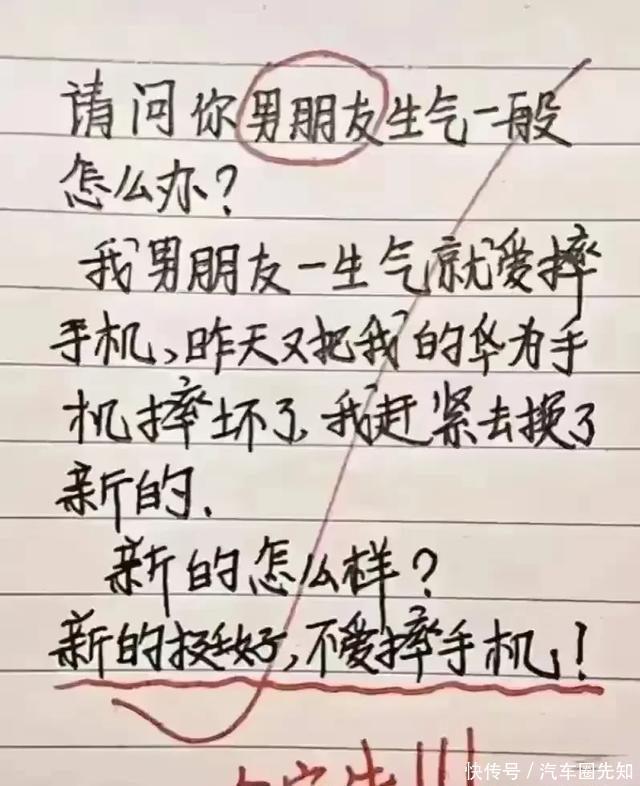 请问你男朋友生气一般
怎么办？
我男朋友一生气就爱摔
手机、昨天又把我的华为手
机摔坏了，我赶紧去换了
新的.
新的怎么样？
新的挺好，不爱摔手机！
快传号／汽车圈先知